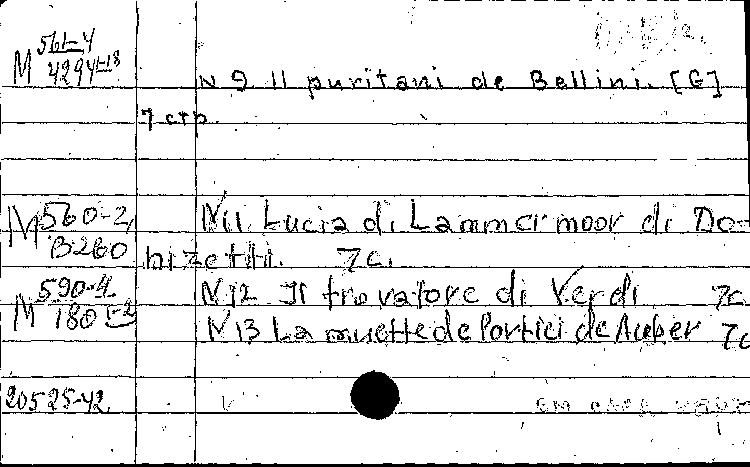 M 561-4
4294-18
N 9 Il puritani de Bellini. [G]
7 стр.
M 560-2
B260
N 11. Lucia di Lammermoor di Do-
nizetti. 7c.
M 590-4
180
N 12 Il trovatore di Verdi 7c
N 13 La muette de Portici de Auber 7c
20525-42.